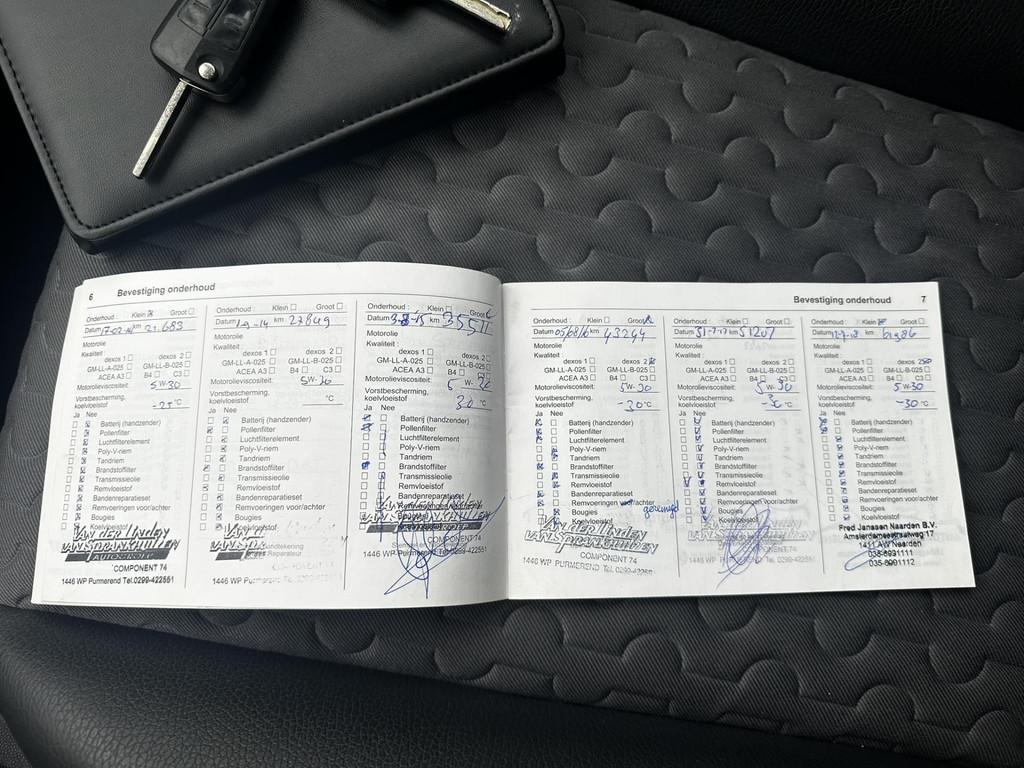 6 Bevestiging onderhoud
Onderhoud: Klein Groot
Datum km 21.683
Motorolie
Kwaliteit:
dexos 1 dexos 2
GM-LL-A-025 GM-LL-B-025
ACEA A3 B4 C3
Motorolieviscositeit:
5W-30
Vorstbescherming,
koelvloeistof -25 °C
Ja Nee
Batterij (handzender)
Pollenfilter
Luchtfilterelement
Poly-V-riem
Tandriem
Brandstoffilter
Transmissieolie
Remvloeistof
Bandenreparatieset
Remvoeringen voor/achter
Bougies
Koelvloeistof
VAN DER LINDEN
VAN SPRANKHUIZEN
AUTOGROEP
COMPONENT 74
1446 WP Purmerend Tel. 0299-422551
Onderhoud: Klein Groot
Datum 1-9-14 km 27849
Motorolie
Kwaliteit:
dexos 1 dexos 2
GM-LL-A-025 GM-LL-B-025
ACEA A3 B4 C3
Motorolieviscositeit:
5W-30
Vorstbescherming,
koelvloeistof °C
Ja Nee
Batterij (handzender)
Pollenfilter
Luchtfilterelement
Poly-V-riem
Tandriem
Brandstoffilter
Transmissieolie
Remvloeistof
Bandenreparatieset
Remvoeringen voor/achter
Bougies
Koelvloeistof
COMPONENT 74
1446 WP Purmerend Tel. 0299-422551
Onderhoud: Klein Groot
Datum 3-8-15 km 35511
Motorolie
Kwaliteit:
dexos 1 dexos 2
GM-LL-A-025 GM-LL-B-025
ACEA A3 B4 C3
Motorolieviscositeit:
5W-30
Vorstbescherming,
koelvloeistof 30 °C
Ja Nee
Batterij (handzender)
Pollenfilter
Luchtfilterelement
Poly-V-riem
Tandriem
Brandstoffilter
Transmissieolie
Remvloeistof
Bandenreparatieset
VAN DER LINDEN
VAN SPRANKHUIZEN
COMPONENT 74
1446 WP Purmerend Tel. 0299-422551
Bevestiging onderhoud 7
Onderhoud: Klein Groot
Datum km 43244
Motorolie
Kwaliteit:
dexos 1 dexos 2
GM-LL-A-025 GM-LL-B-025
ACEA A3 B4 C3
Motorolieviscositeit:
5W-30
Vorstbescherming,
koelvloeistof -30 °C
Ja Nee
Batterij (handzender)
Pollenfilter
Luchtfilterelement
Poly-V-riem
Tandriem
Brandstoffilter
Transmissieolie
Remvloeistof
Bandenreparatieset
Remvoeringen voor/achter gereinigd
Bougies
Koelvloeistof
VAN DER LINDEN
VAN SPRANKHUIZEN
COMPONENT 74
1446 WP PURMEREND Tel. 0299-422551
Onderhoud: Klein Groot
Datum 31-7-17 km 51207
Motorolie
Kwaliteit:
dexos 1 dexos 2
GM-LL-A-025 GM-LL-B-025
ACEA A3 B4 C3
Motorolieviscositeit:
5W-30
Vorstbescherming,
koelvloeistof °C
Ja Nee
Batterij (handzender)
Pollenfilter
Luchtfilterelement
Poly-V-riem
Tandriem
Brandstoffilter
Transmissieolie
Remvloeistof
Bandenreparatieset
Remvoeringen voor/achter
Bougies
Koelvloeistof
VAN DER LINDEN
VAN SPRANKHUIZEN
COMPONENT 74
1446 WP PURMEREND Tel. 0299-422551
Onderhoud: Klein Groot
Datum km
Motorolie
Kwaliteit:
dexos 1 dexos 2
GM-LL-A-025 GM-LL-B-025
ACEA A3 B4 C3
Motorolieviscositeit:
5W-30
Vorstbescherming,
koelvloeistof -30 °C
Ja Nee
Batterij (handzender)
Pollenfilter
Luchtfilterelement
Poly-V-riem
Tandriem
Brandstoffilter
Transmissieolie
Remvloeistof
Bandenreparatieset
Remvoeringen voor/achter
Bougies
Koelvloeistof
Fred Janssen Naarden B.V.
Amsterdamsestraatweg 17
1411 AW Naarden
035-6931111
035-6931112